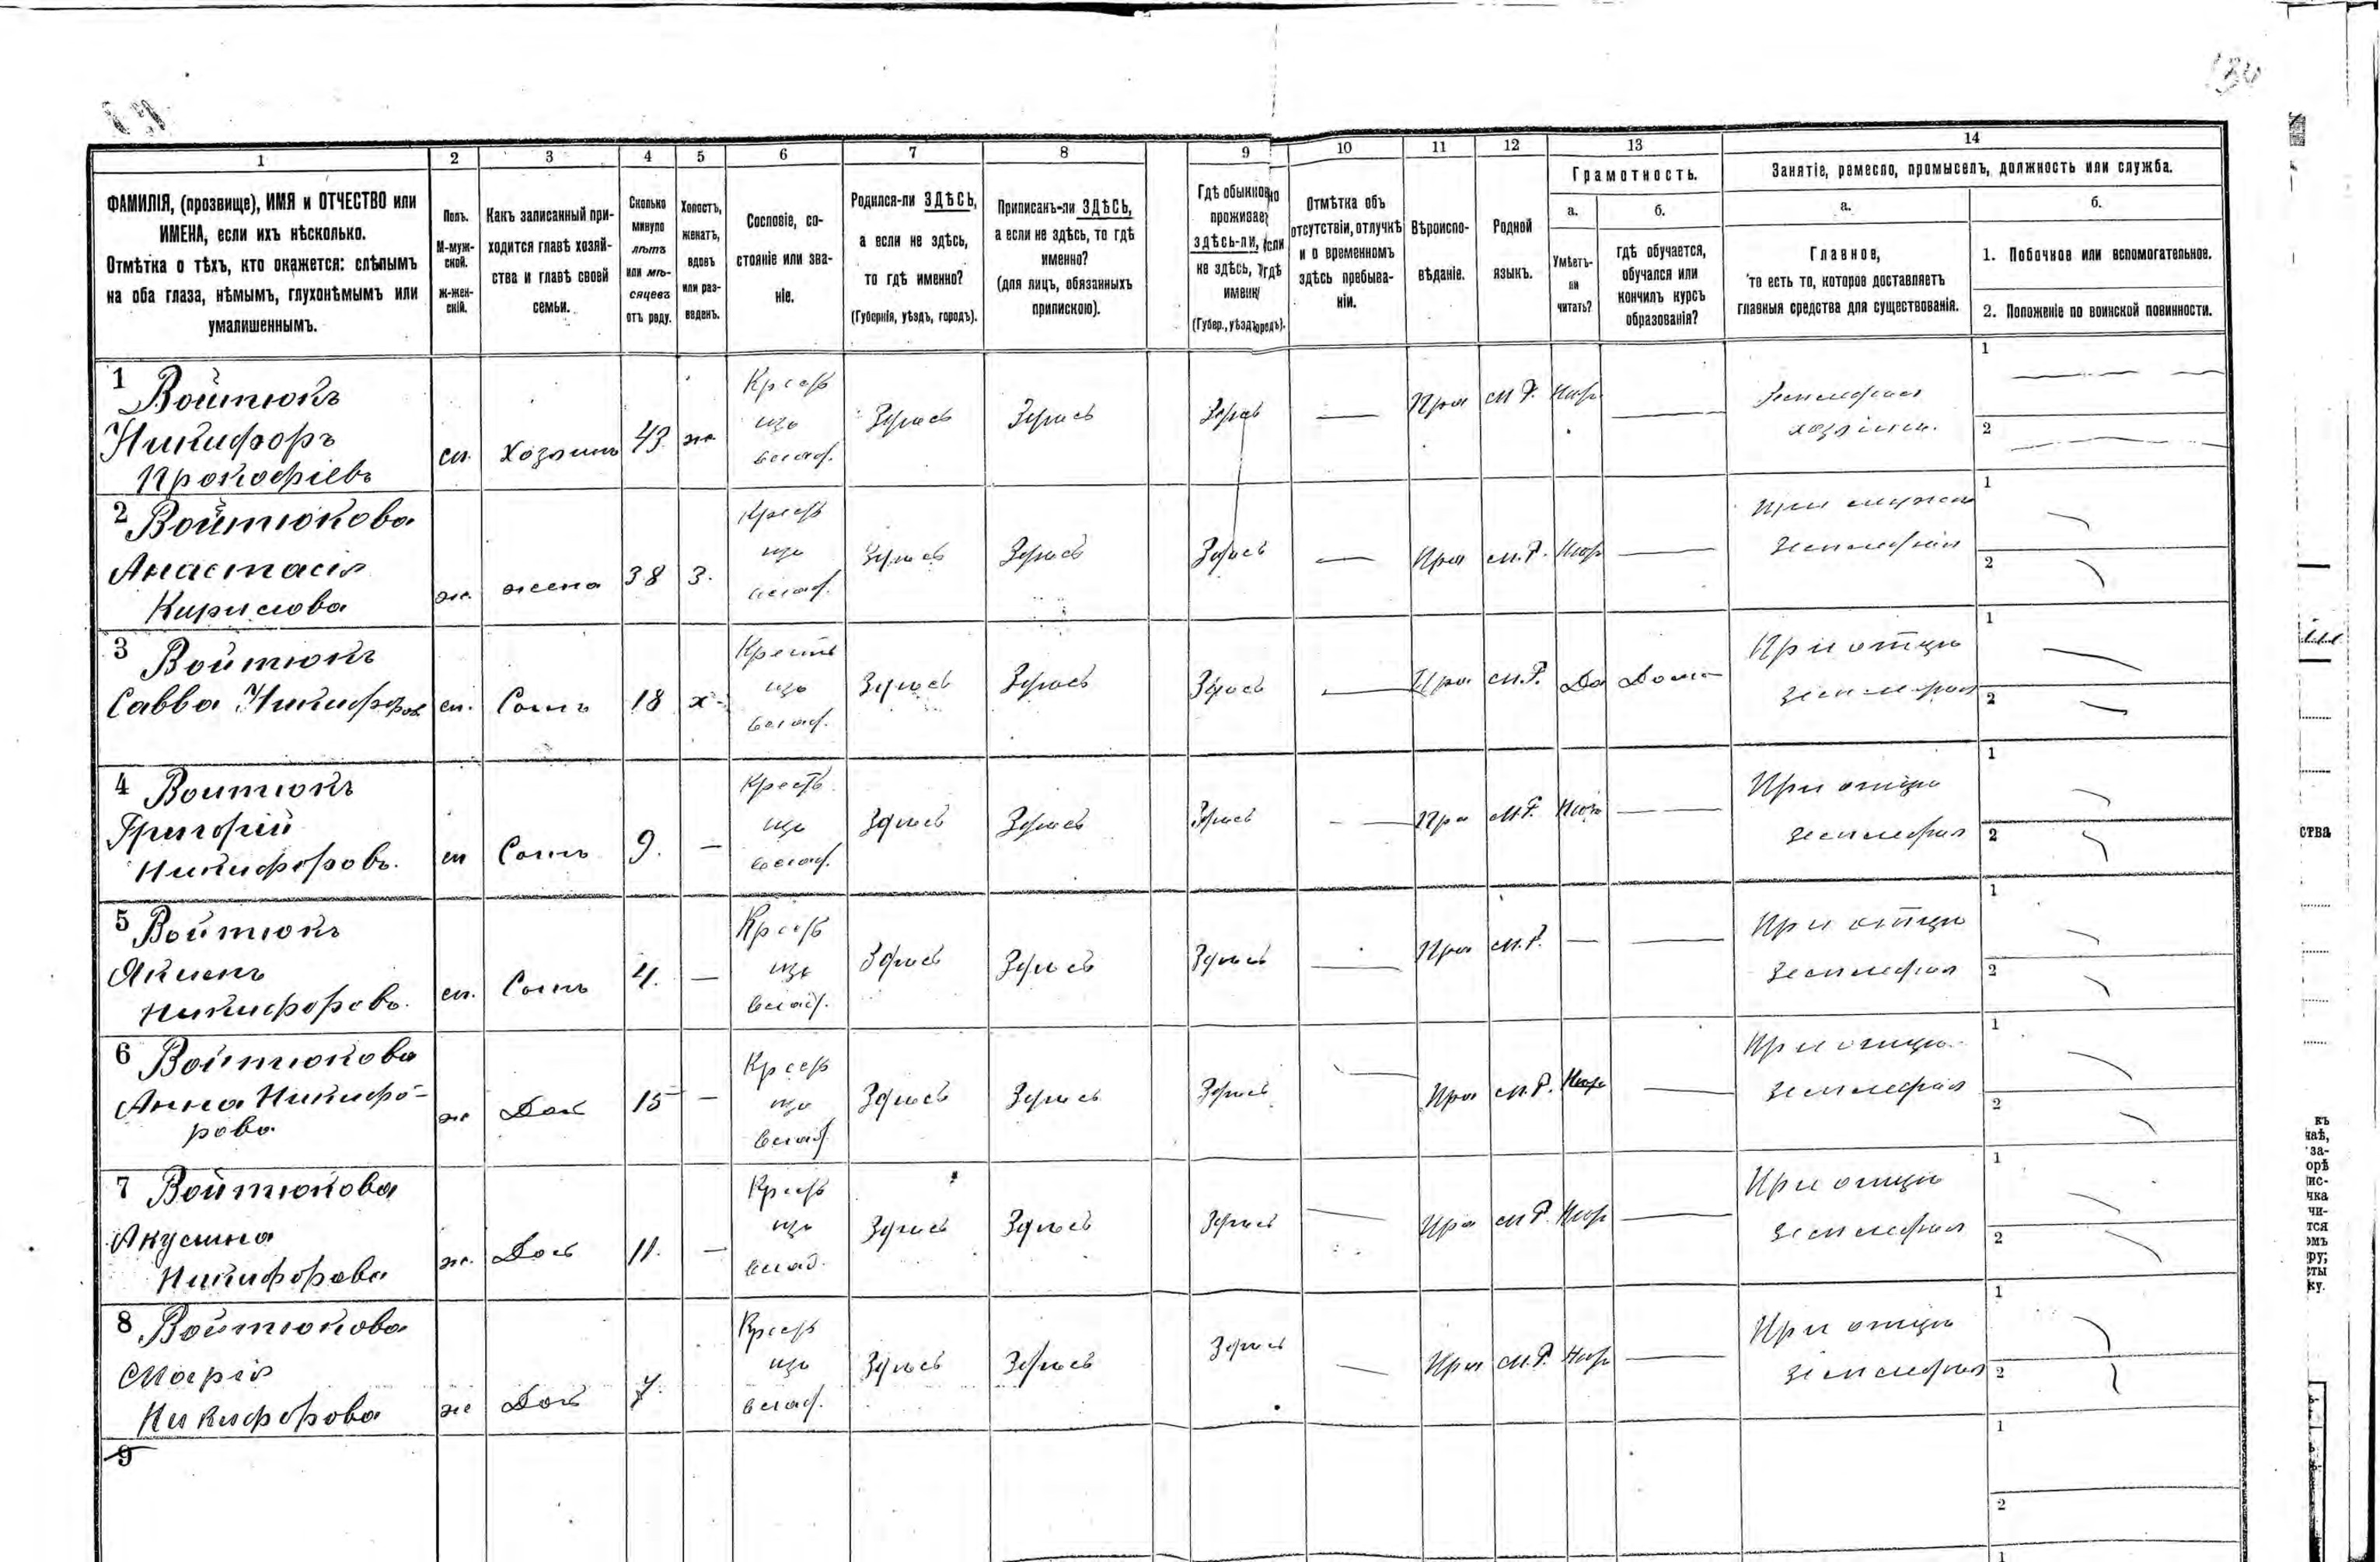 1 2 3 4 5 6 7 8 9 10 11 12 13 14
ФАМИЛІЯ, (прозвище), ИМЯ и ОТЧЕСТВО или
ИМЕНА, если ихъ нѣсколько.
Отмѣтка о тѣхъ, кто окажется: слѣпымъ
на оба глаза, нѣмымъ, глухонѣмымъ или
умалишеннымъ.
Полъ.
М-муж-
ской.
Ж-жен-
скій.
Какъ записанный при-
ходится главѣ хозяй-
ства и главѣ своей
семьи.
Сколько
минуло
лѣтъ
или мѣ-
сяцевъ
отъ роду.
Холостъ,
женатъ,
вдовъ
или раз-
веденъ.
Сословіе, со-
стояніе или зва-
ніе.
Родился-ли ЗДѢСЬ,
а если не здѣсь,
то гдѣ именно?
(Губернія, уѣздъ, городъ).
Приписанъ-ли ЗДѢСЬ,
а если не здѣсь, то гдѣ
именно?
(для лицъ, обязанныхъ
припискою).
Гдѣ обыкновно
проживает
ЗДѢСЬ-ЛИ, если
не здѣсь, гдѣ
именн
(Губер., уѣздъ, городъ).
Отмѣтка объ
отсутствіи, отлучкѣ
и о временномъ
здѣсь пребыва-
ніи.
Вѣроиспо-
вѣданіе.
Родной
языкъ.
Грамотность.
а.
Умѣетъ-
ли
читать?
б.
гдѣ обучается,
обучался или
кончилъ курсъ
образованія?
Занятіе, ремесло, промыселъ, должность или служба.
а.
Главное,
то есть то, которое доставляетъ
главныя средства для существованія.
б.
1. Побочное или вспомогательное.
2. Положеніе по воинской повинности.
1 Войтюкъ
Никифоръ
Прокофіевъ
м. Хозяинъ 43 ж.
Крестъ
изъ
владѣ.
Здѣсь Здѣсь Здѣсь — Пра М.Р. Нѣтъ —
Земледѣл
хозяин.
1
2
2 Войтюкова
Анастасія
Кирилова
ж. жена 38 З.
Крестъ
изъ
владѣ.
Здѣсь Здѣсь Здѣсь — Пра М.Р. Нѣтъ —
При мужѣ
Земледѣлія
1
2
3 Войтюкъ
Савва Никифоров
м. Сынъ 18 х
Крестъ
изъ
владѣ.
Здѣсь Здѣсь Здѣсь — Пра М.Р. Да Дома
При отцѣ
Земледѣлія
1
2
4 Войтюкъ
Григорій
Никифоровъ.
м Сынъ 9. —
Крестъ
изъ
владѣ.
Здѣсь Здѣсь Здѣсь — Пра М.Р. Нѣтъ —
При отцѣ
Земледѣлія
1
2
5 Войтюкъ
Якимъ
Никифоровъ.
м. Сынъ 4. —
Крестъ
изъ
владѣ.
Здѣсь Здѣсь Здѣсь — Пра М.Р. — —
При отцѣ
Земледѣлія
1
2
6 Войтюкова
Анна Никифо-
рова
ж Доч 15 —
Крестъ
изъ
владѣ
Здѣсь Здѣсь Здѣсь — Пра М.Р. Нѣтъ —
При отцѣ
Земледѣлія
1
2
7 Войтюкова
Акулина
Никифорова
ж. Доч 11. —
Крестъ
изъ
влад.
Здѣсь Здѣсь Здѣсь — Пра М.Р. Нѣтъ —
При отцѣ
Земледѣлія
1
2
8 Войтюкова
Марія
Никифорова
ж Доч 7.
Крестъ
изъ
владѣ.
Здѣсь Здѣсь Здѣсь — Пра М.Р. Нѣтъ —
При отцѣ
Земледѣлія
1
2
9
1
2
1
ства
къ
чаѣ,
за-
орѣ
ис-
чка
чи-
тся
омъ
ру;
сты
ку.